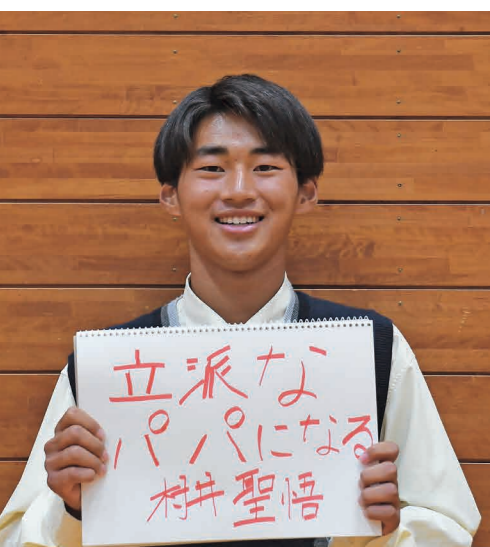 立派な
パパになる
村井 聖悟